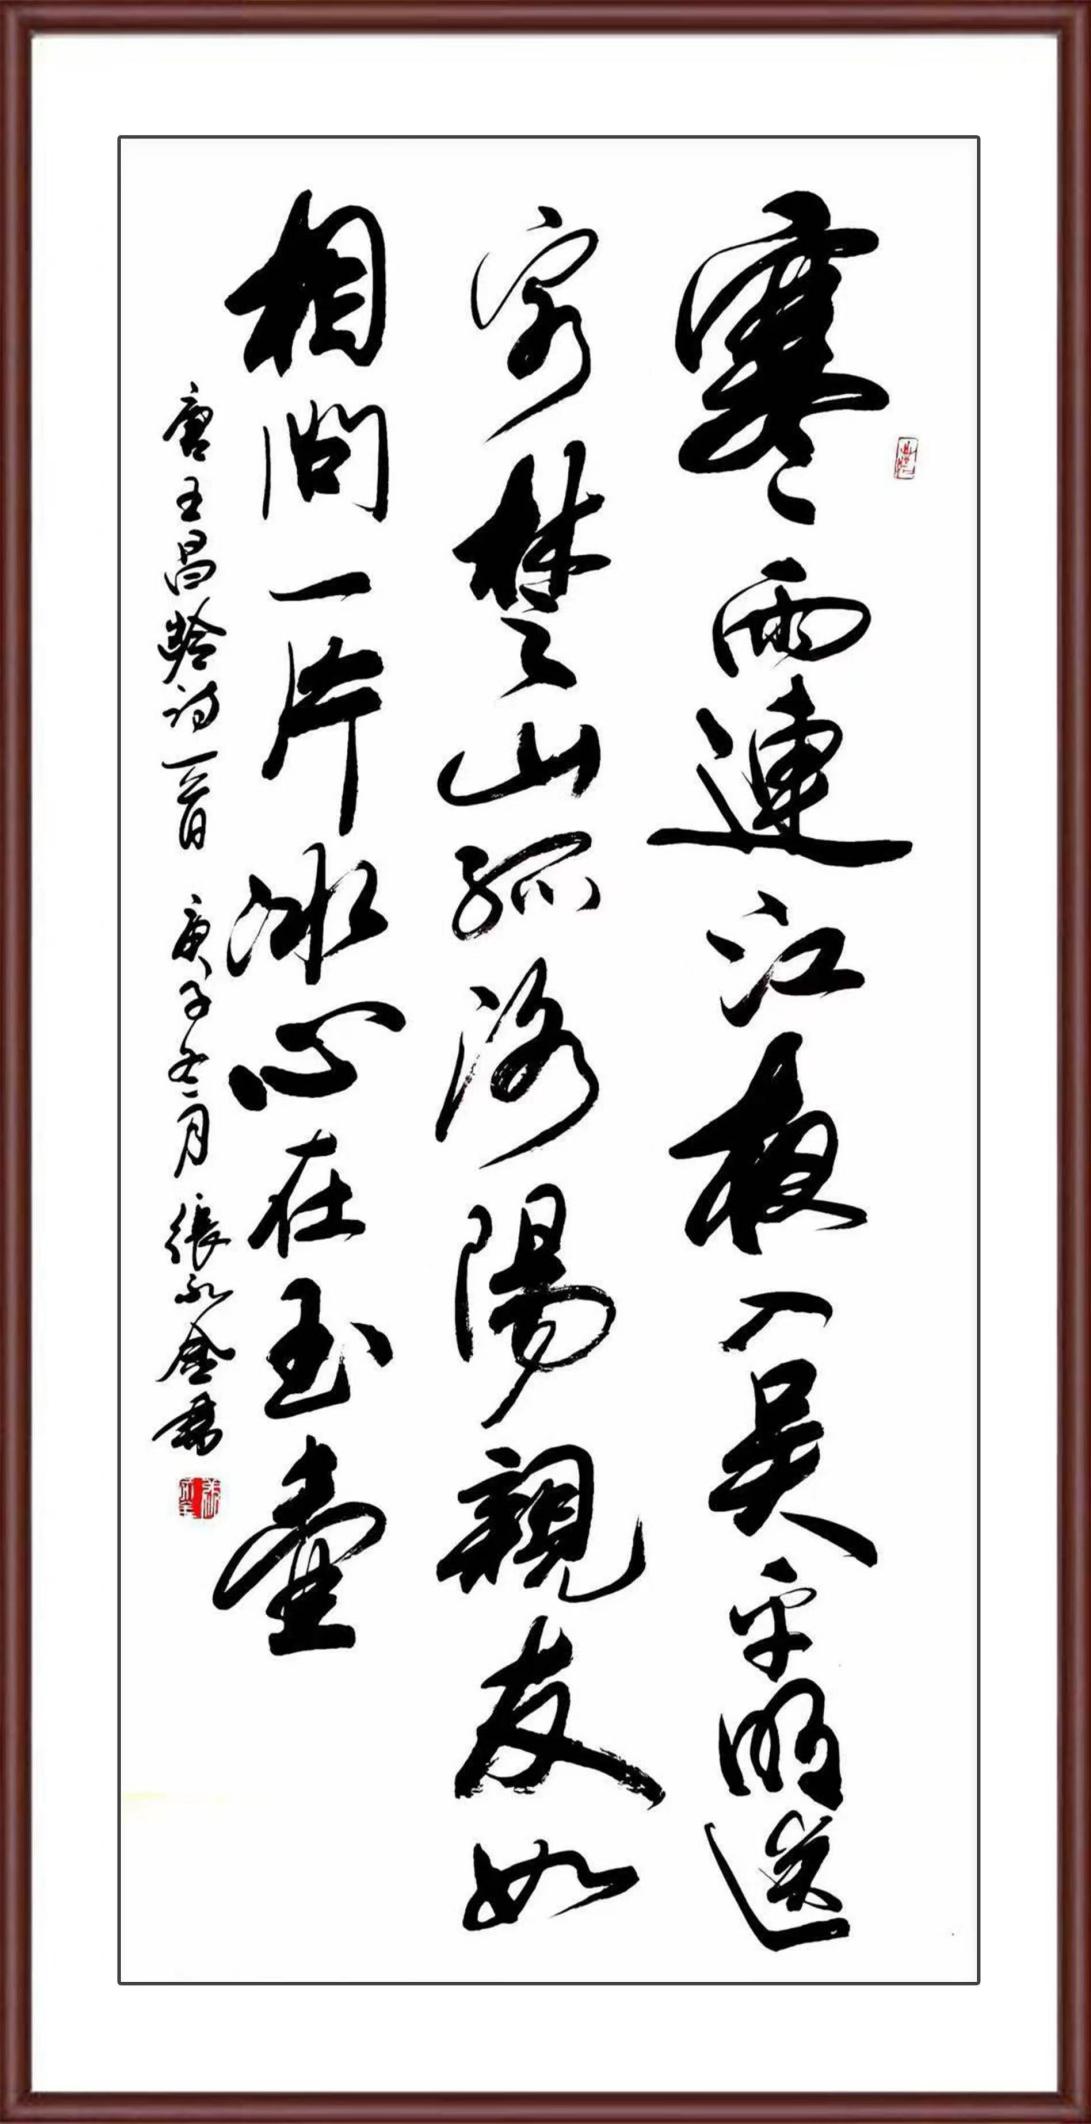 寒雨連江夜入吴平明送
客楚山孤洛陽親友如
相問一片冰心在玉壺
唐王昌龄诗一首 庚子冬月 張永金書